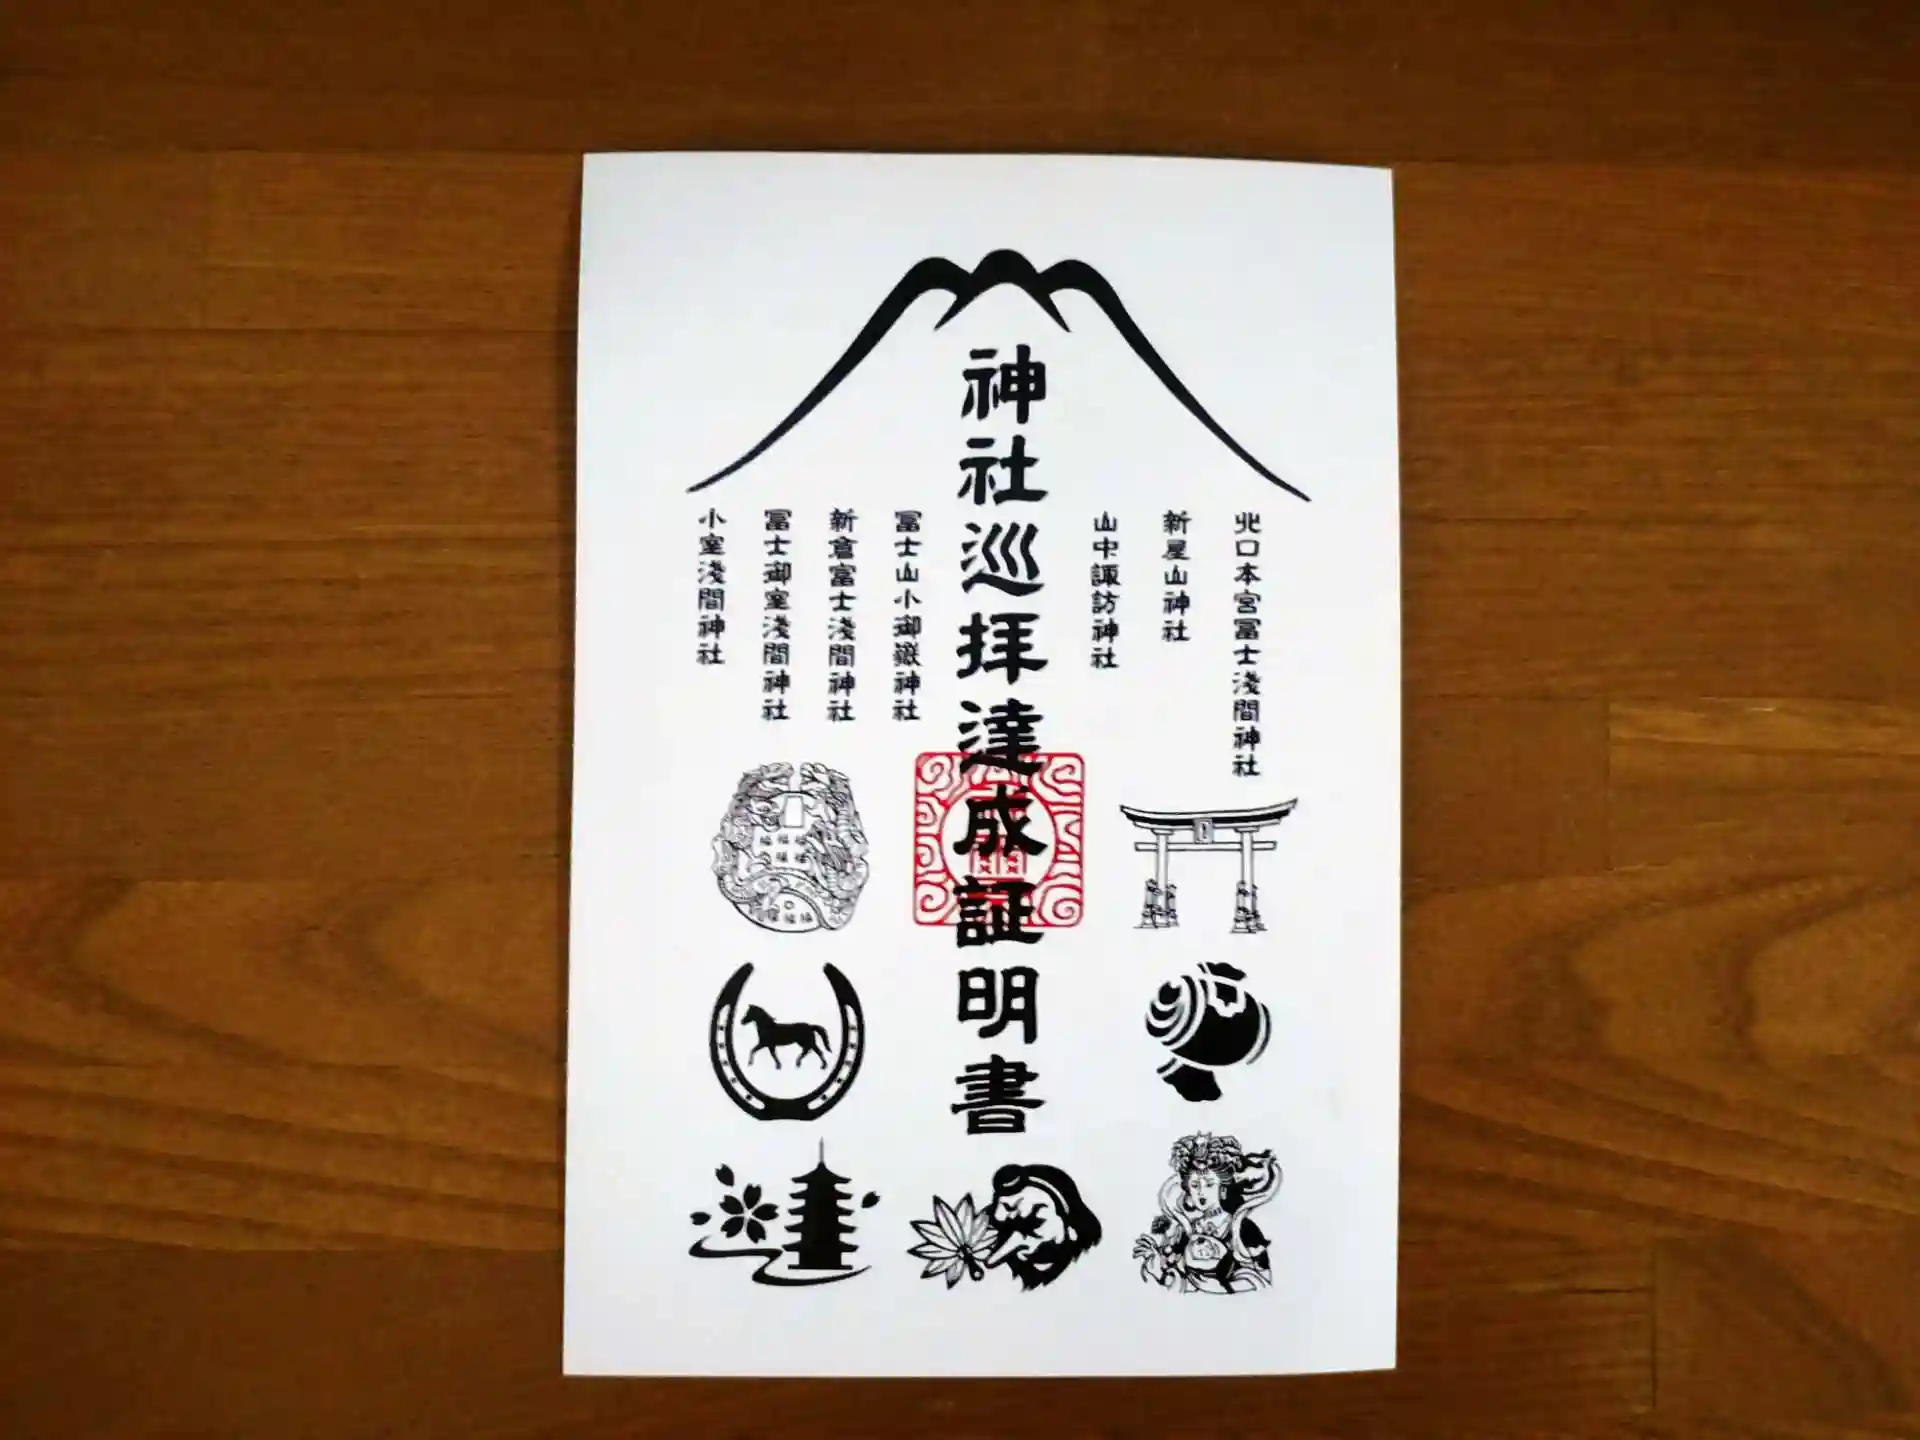 北口本宮冨士浅間神社
新屋山神社
山中諏訪神社
神社巡拝達成証明書
冨士山小御嶽神社
新倉富士浅間神社
冨士御室浅間神社
小室浅間神社